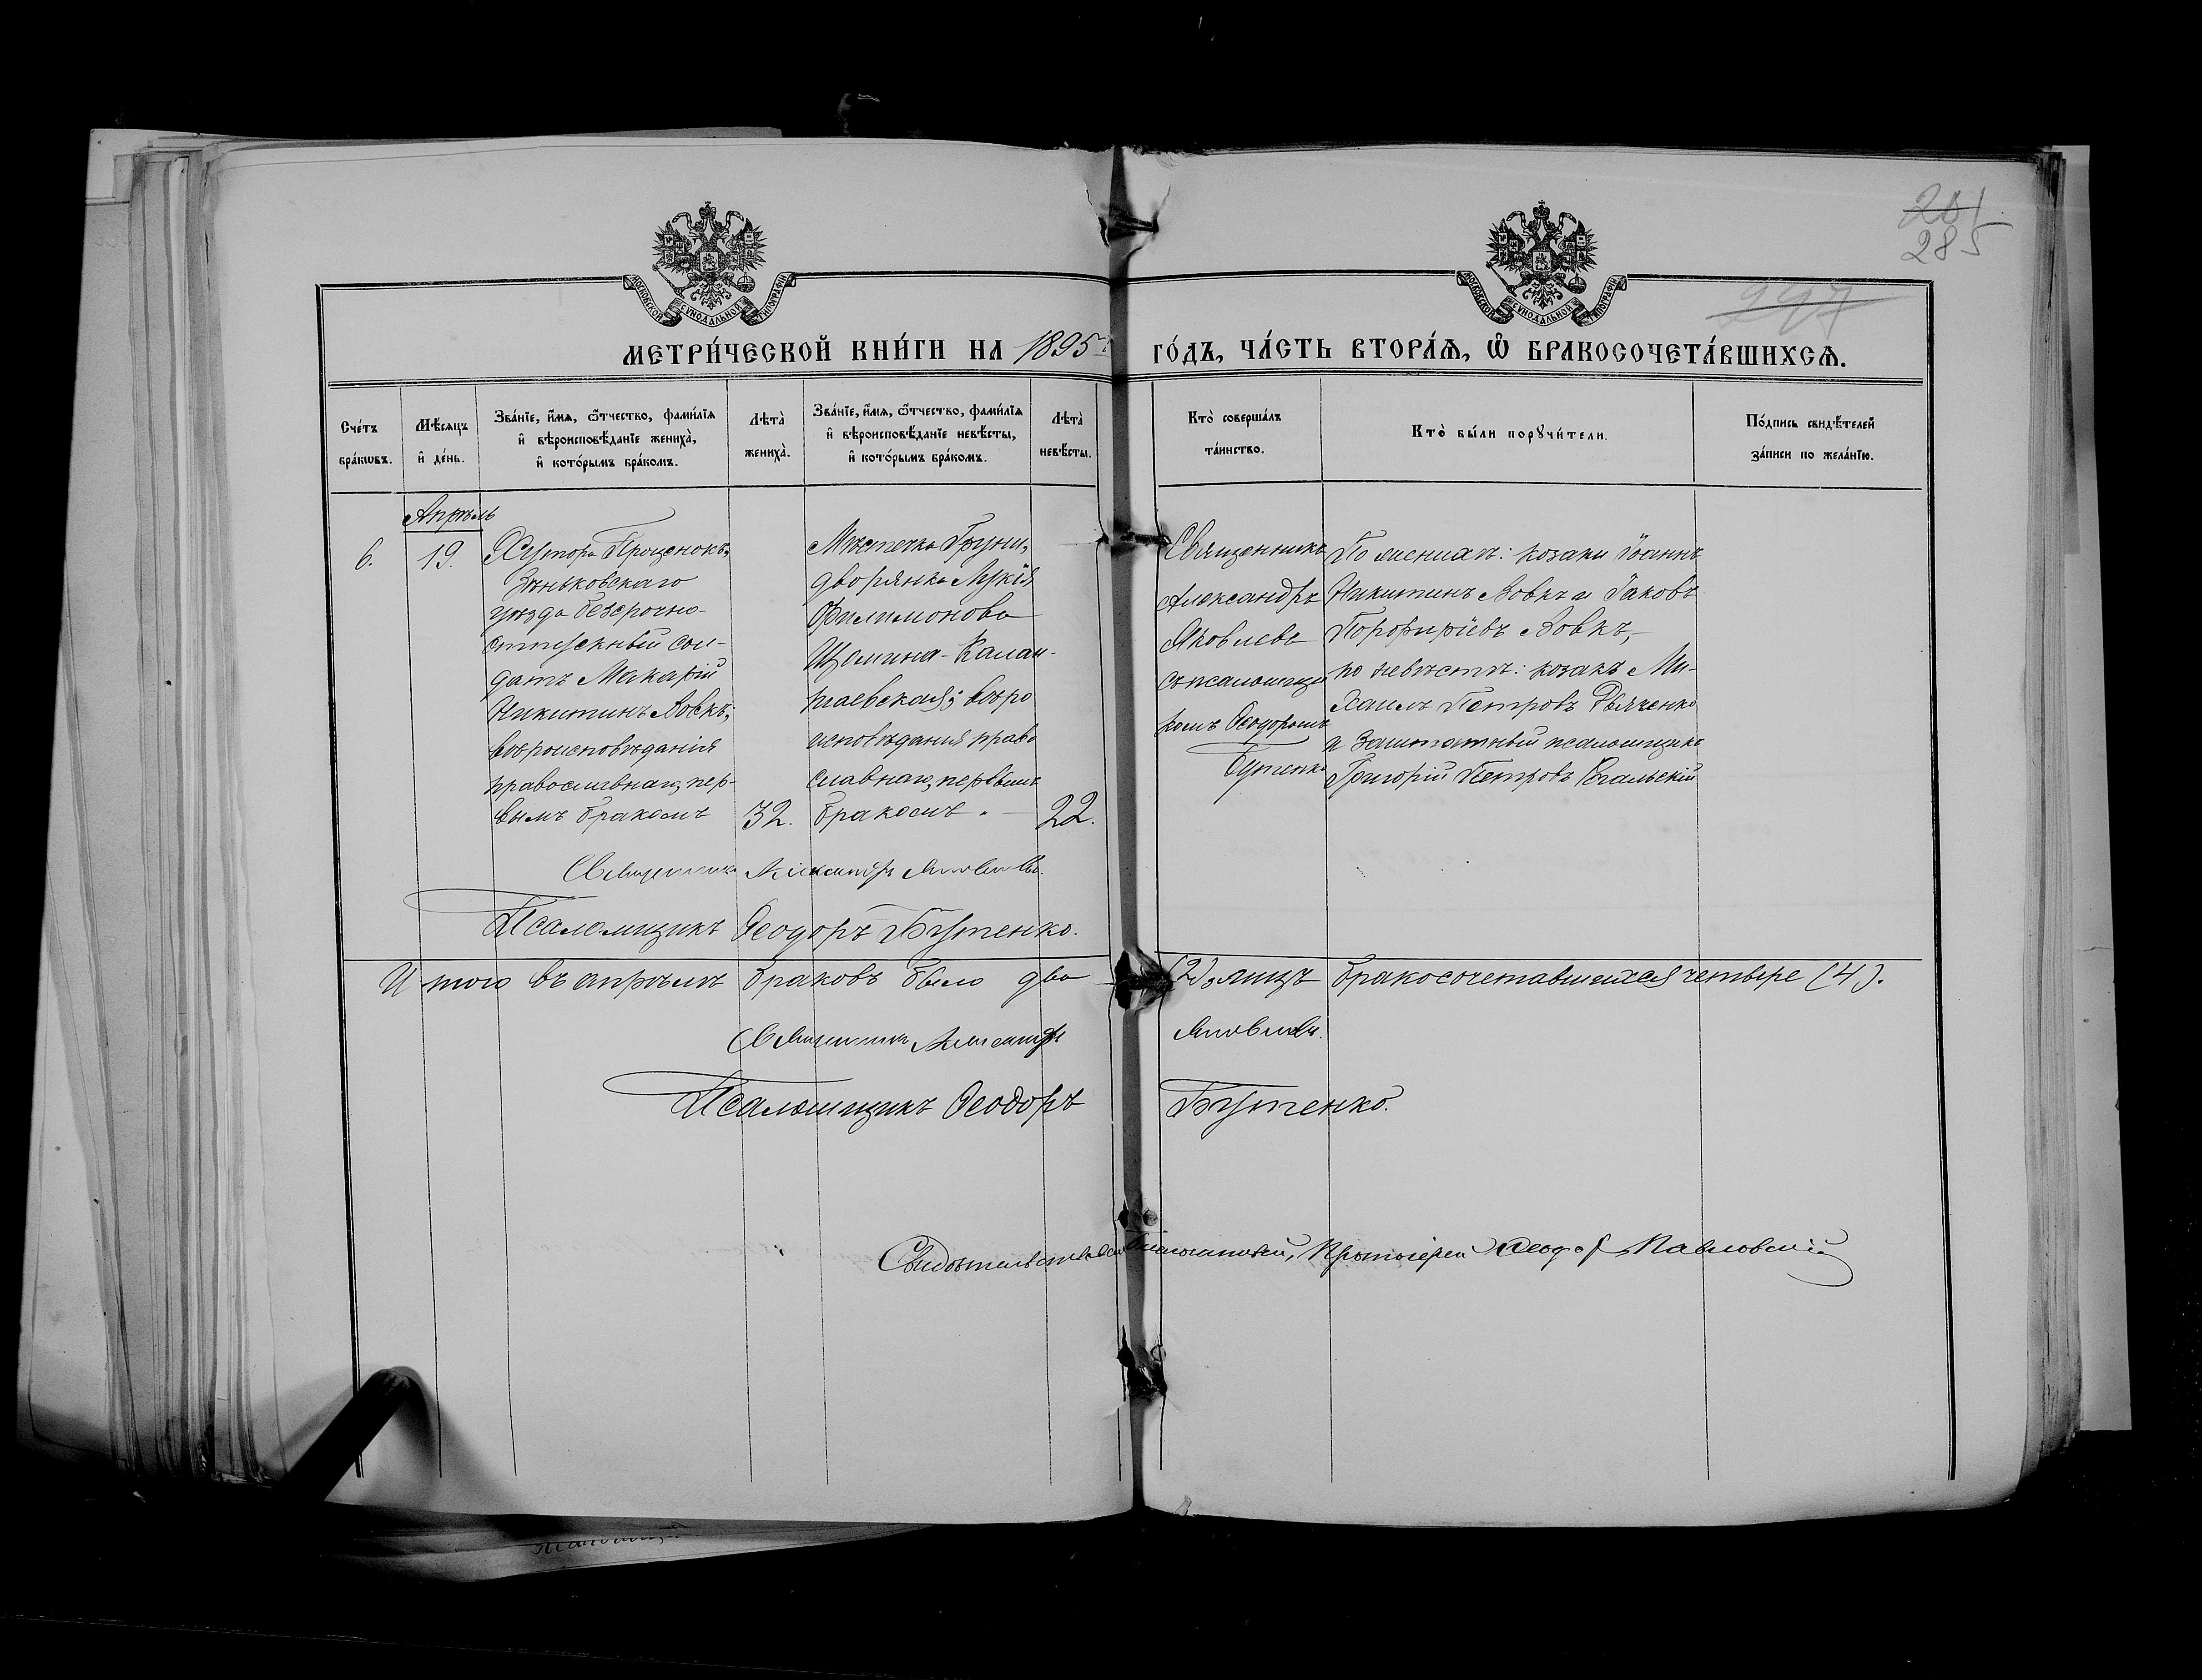 281
285
297
МОСКОВСКОЙ СѴНОДАЛЬНОЙ ТИПОГРАФІИ
МОСКОВСКОЙ СѴНОДАЛЬНОЙ ТИПОГРАФІИ
МЕТРИ́ЧЕСКОЙ КНИ́ГИ НА 1895 ГО́ДЪ, ЧА́СТЬ ВТОРА́Ѧ, Ѡ БРАКОСОЧЕТА́ВШИХСѦ.
Сче́тъ бра́кѡвъ.
Мѣ́сѧцъ и҆ де́нь.
Зва́нїе, и҆́мѧ, ѻ҆́тчество, фамі́лїѧ и҆ вѣроисповѣ́данїе жениха̀, и҆ кото́рымъ бра́комъ.
Лѣта̀ жениха̀.
Зва́нїе, и҆́мѧ, ѻ҆́тчество, фамі́лїѧ и҆ вѣроисповѣ́данїе невѣ́сты, и҆ кото́рымъ бра́комъ.
Лѣта̀ невѣ́сты.
Кто̀ соверша́лъ та́инство.
Кто̀ бы́ли порꙋчи́тели.
По́дпись свидѣ́телей за́писи по жела́нїю.
Апрѣль
6.
19.
Хутора Проценокъ,
Зѣньковскаго
уѣзда безсрочно-
отпускный сол-
датъ Макарій
Никитинъ Вовкъ;
вѣроисповѣданія
православнаго, пер-
вымъ бракомъ
32.
Мѣстечка Груни,
дворянка Лукія
Филимонова
Щомина-Калан-
таевская; вѣро
исповѣданія право
славнаго, первымъ
бракомъ.
22.
Священникъ
Александръ
Яковлевъ
съ псаломщи
комъ Ѳеодоромъ
Бутенко
По женихѣ: козаки Іоаннъ
Никитинъ Вовкъ и Іаковъ
Порфиріевъ Вовкъ,
по невѣстѣ: козакъ Ми-
хаилъ Петровъ Дяченко
и заштатный псаломщикъ
Григорій Петровъ
Священникъ Александръ Яковлевъ.
Псаломщикъ Ѳеодоръ Бутенко.
Итого въ апрѣлѣ браковъ было два (2), лицъ бракосочетавшихся четверо (4).
Священникъ Александръ Яковлевъ.
Псаломщикъ Ѳеодоръ Бутенко.
Протоіерей Ѳеодоръ Павловскій